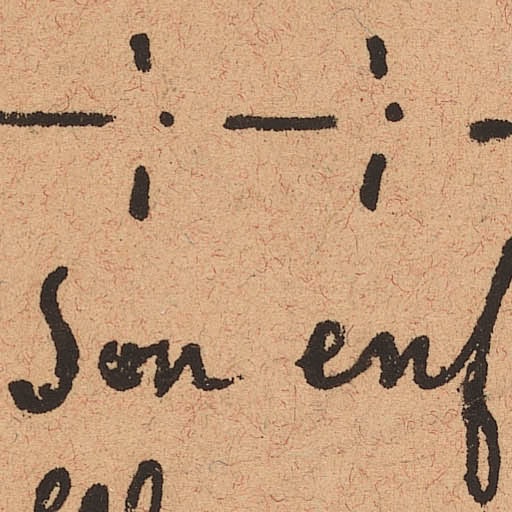 Son enf